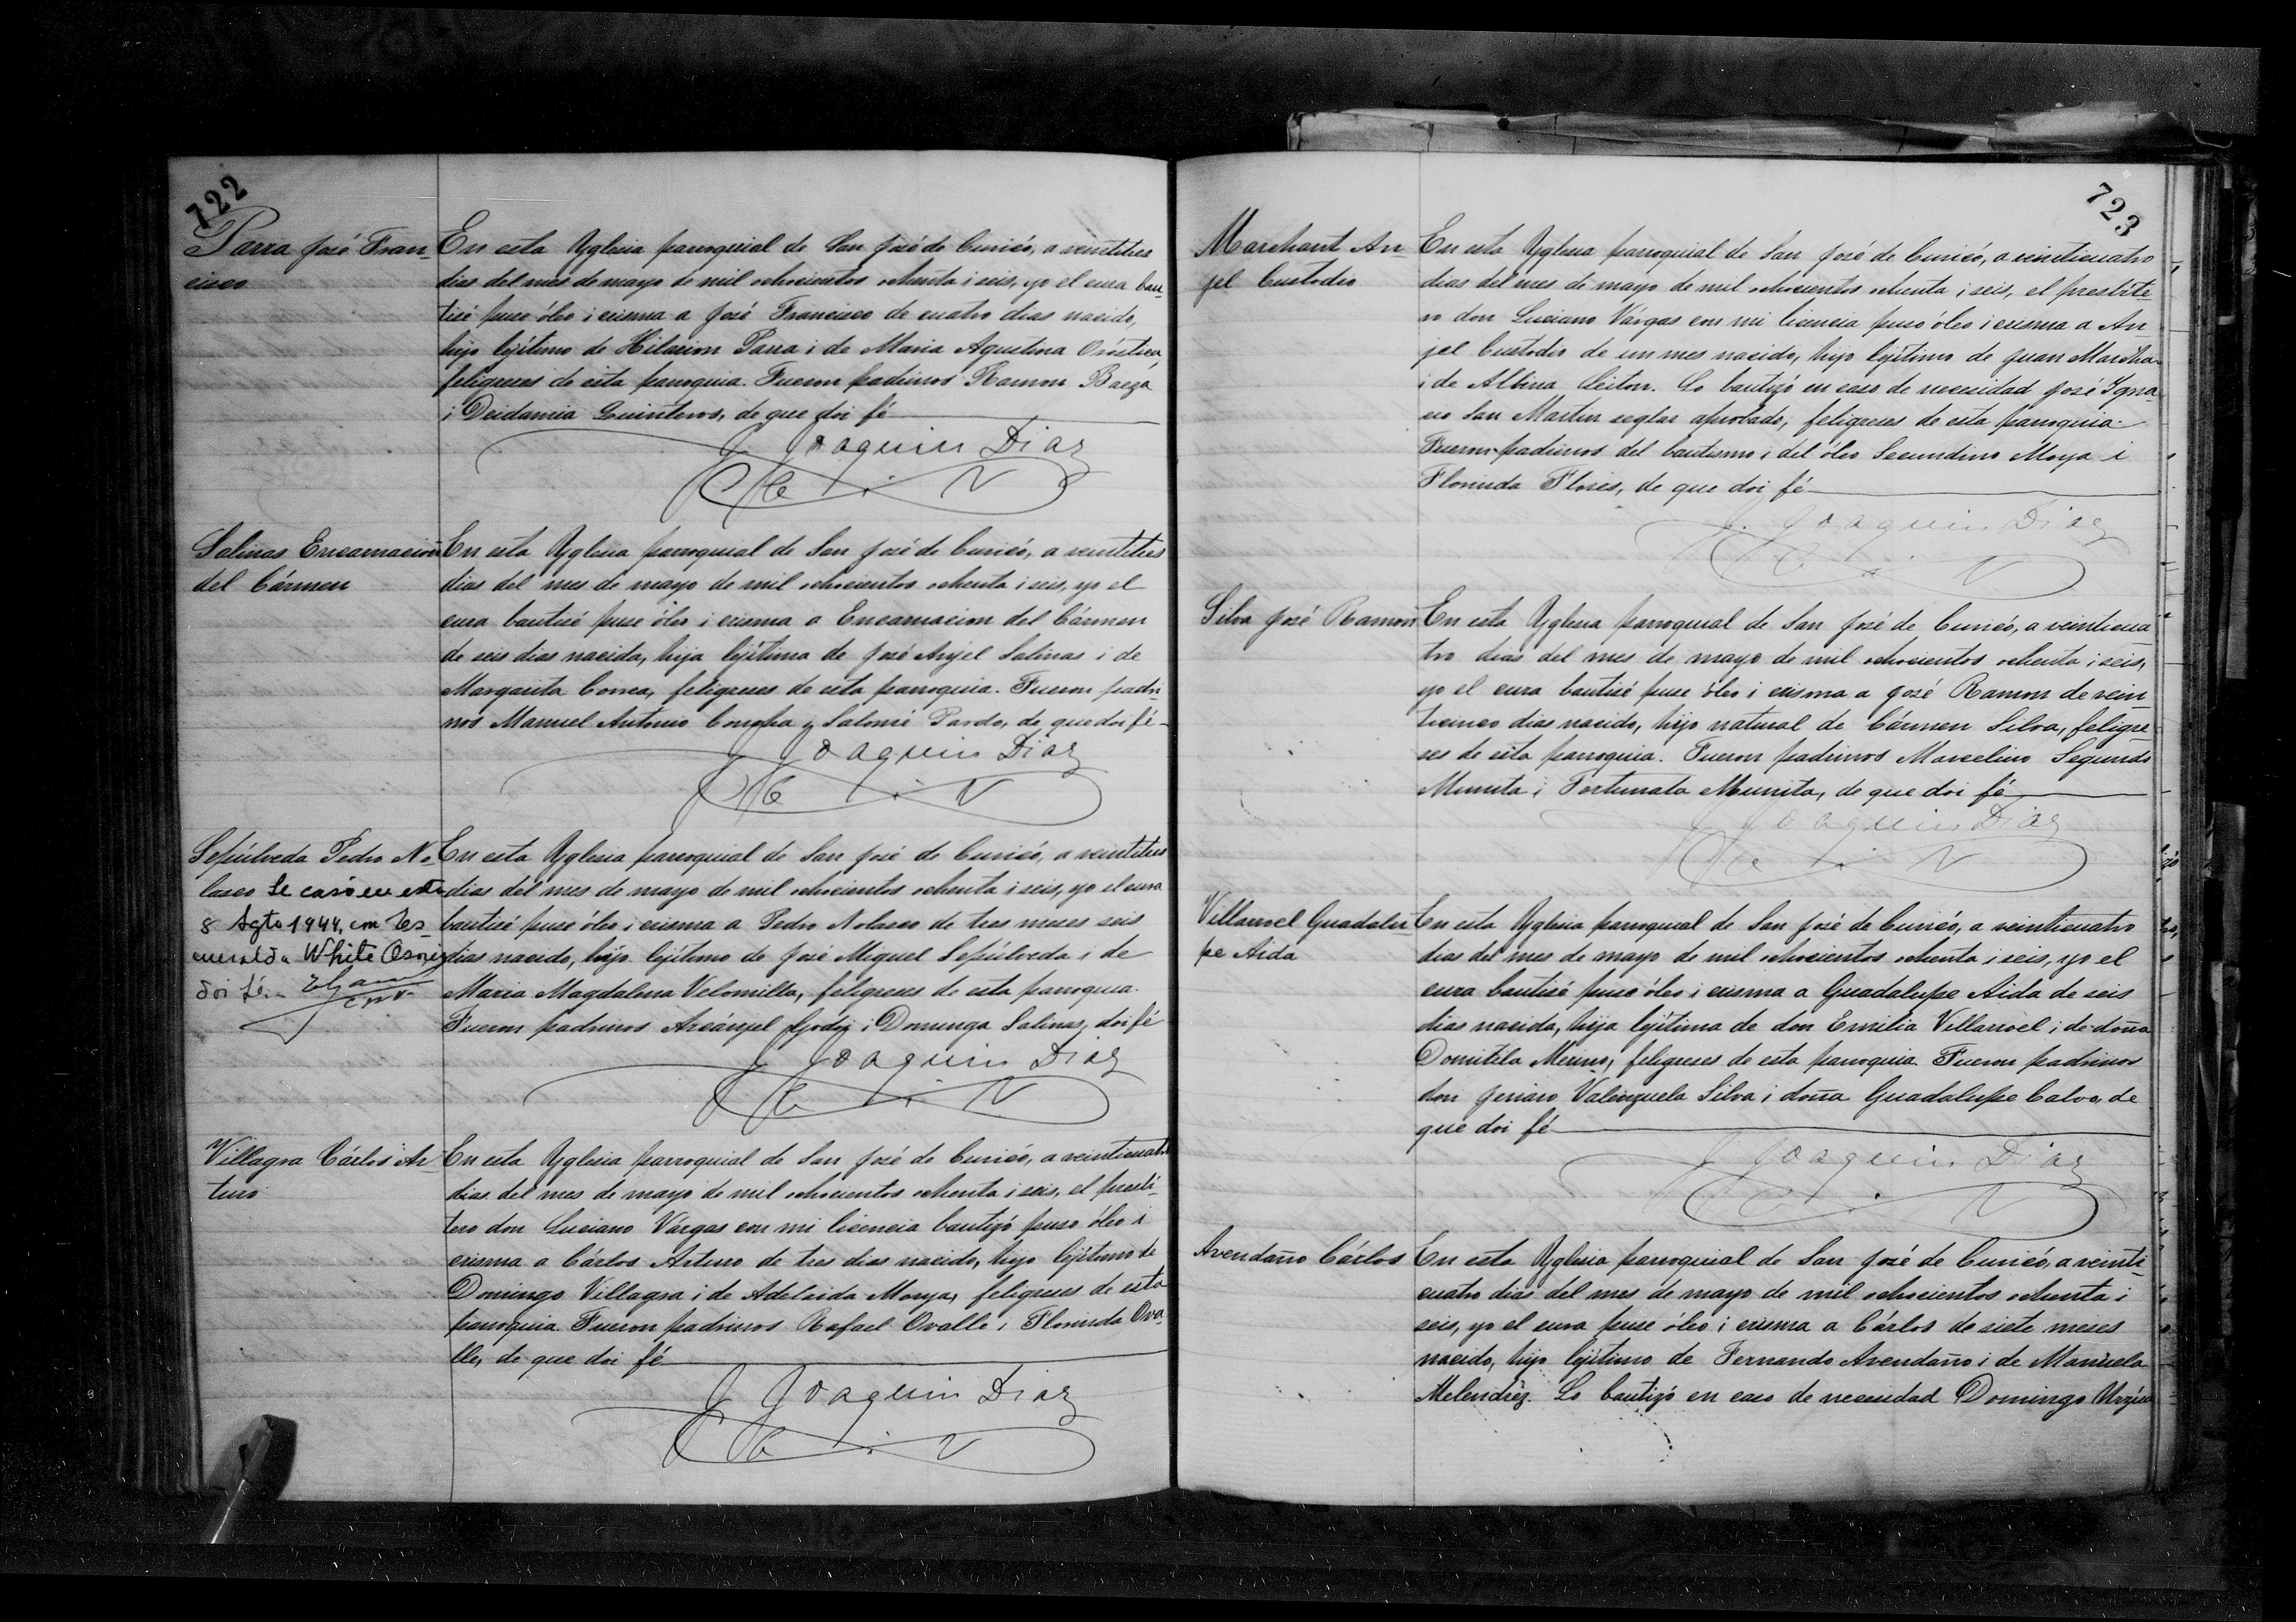 722
Parra José Fran-
cisco
En esta Yglesia parroquial de San José de Curicó, a veintitres
dias del mes de mayo de mil ochocientos ochenta i seis, yo el cura bau-
ticé puse óleo i crisma a José Francisco de cuatro dias nacido,
hijo lejítimo de Hilarion Parra i de Maria Agustina Oróstica,
feligreses de esta parroquia. Fueron padrinos Ramon Baeza
i Deidamia Quinteros, de que doi fé
J. Joaquin Diaz
Salinas Encarnacion
del Cármen
En esta Yglesia parroquial de San José de Curicó, a veintitres
dias del mes de mayo de mil ochocientos ochenta i seis, yo el
cura bauticé puse óleo i crisma a Encarnacion del Cármen
de seis dias nacida, hija lejítima de José Anjel Salinas i de
Margarita Correa, feligreses de esta parroquia. Fueron padri-
nos Manuel Antonio Concha y Salomé Pardo, de que doi fé
J. Joaquin Diaz
Sepúlveda Pedro No
lasco Se casó en esta
8 Agto 1944, con Es-
meralda White Osorio
doi fé.-
En esta Yglesia parroquial de San José de Curicó, a veintitres
dias del mes de mayo de mil ochocientos ochenta i seis, yo el cura
bauticé puse óleo i crisma a Pedro Nolasco de tres meses seis
dias nacido, hijo lejítimo de José Miguel Sepúlveda i de
Maria Magdalena Velomilla, feligreses de esta parroquia.
Fueron padrinos Arcánjel Godoy i Dominga Salinas, doi fé
J. Joaquin Diaz
Villagra Cárlos Ar
turo
En esta Yglesia parroquial de San José de Curicó, a veinticuatro
dias del mes de mayo de mil ochocientos ochenta i seis, el presbí-
tero don Luciano Várgas con mi licencia bautizó puso óleo i
crisma a Cárlos Arturo de tres dias nacido, hijo lejítimo de
Domingo Villagra i de Adelaida Moya, feligreses de esta
parroquia. Fueron padrinos Rafael Ovalle i Florinda Ova-
lle, de que doi fé
J. Joaquin Diaz
723
Marchant An-
jel Custodio
En esta Yglesia parroquial de San José de Curicó, a veinticuatro
dias del mes de mayo de mil ochocientos ochenta i seis, el presbíte-
ro don Luciano Várgas con mi licencia puso óleo i crisma a An
jel Custodio de un mes nacido, hijo lejítimo de Juan Marcha
i de Albina Leiton. Lo bautizó en caso de necesidad José Igna
cio San Martin seglar aprobado, feligreses de esta parroquia.
Fueron padrinos del bautismo i del óleo Secundino Moya i
Florinda Flores, de que doi fé
J. Joaquin Diaz
Silva José Ramon
En esta Yglesia parroquial de San José de Curicó, a veinticua
tro dias del mes de mayo de mil ochocientos ochenta i seis,
yo el cura bauticé puse óleo i crisma a José Ramon de vein
ticinco dias nacido, hijo natural de Cármen Silva, feligre
ses de esta parroquia. Fueron padrinos Marcelino Segundo
Munita i Fortunata Munita, de que doi fé
J. Joaquin Diaz
Villarroel Guadalu-
pe Aida
En esta Yglesia parroquial de San José de Curicó, a veinticuatro
dias del mes de mayo de mil ochocientos ochenta i seis, yo el
cura bauticé puse óleo i crisma a Guadalupe Aida de seis
dias nacida, hija lejítima de don Emilia Villarroel i de doña
Domitila Merino, feligreses de esta parroquia. Fueron padrinos
don Jenaro Valenzuela Silva i doña Guadalupe Calvo, de
que doi fé
J. Joaquin Diaz
Avendaño Cárlos
En esta Yglesia parroquial de San José de Curicó, a veinti-
cuatro dias del mes de mayo de mil ochocientos ochenta i
seis, yo el cura puse óleo i crisma a Cárlos de siete meses
nacido, hijo lejítimo de Fernando Avendaño i de Manuela
Melendrez. Lo bautizó en caso de necesidad Domingo Urzúa